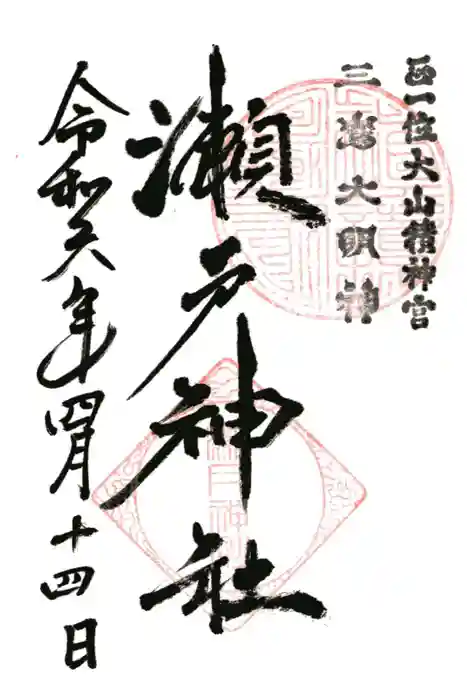 正一位大山積神宮
三嶌大明神
瀬戸神社
令和六年四月十四日